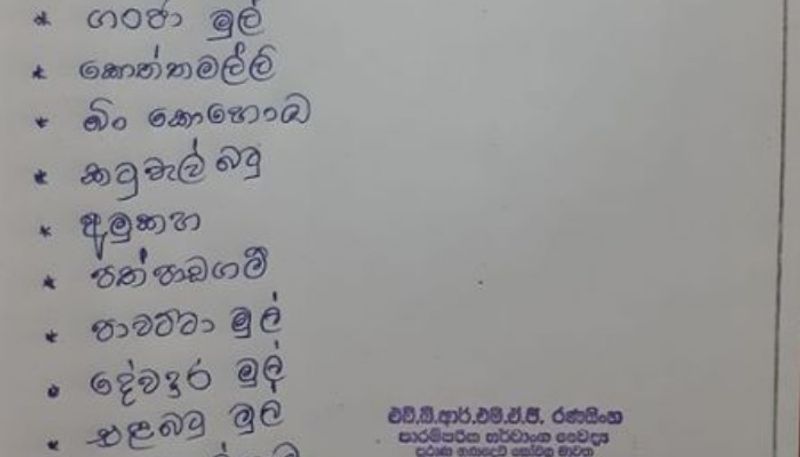 * ගංජා මුල්
* කොත්තමල්ලි
* බිං කොහොඹ
* කටුවැල් බටු
* අමුකහ
* පත්පාඩගම්
* පාවට්ටා මුල්
* දේවදුර මුල්
* එළබටු මුල්
එච්.බී.ආර්.එම්.ඒ.ජී. රණසිංහ
පාරම්පරික සර්වාංග වෛද්‍ය